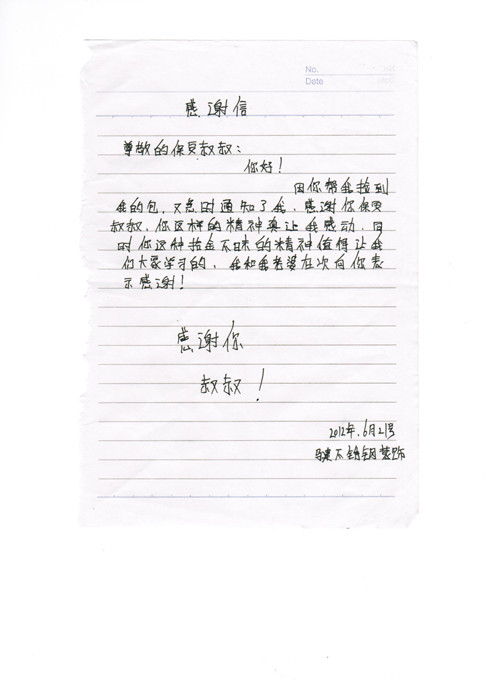 No.
Date
感谢信
尊敬的保安叔叔：
你好！
因你帮我捡到
我的包，又急时通知了我，感谢你保安
叔叔，你这样的精神真让我感动，同
时你这种拾金不昧的精神值得让我
们大家学习的，我和我老婆在次向你表
示感谢！
感谢你
叔叔！
2012年.6月21号
不锈钢装饰